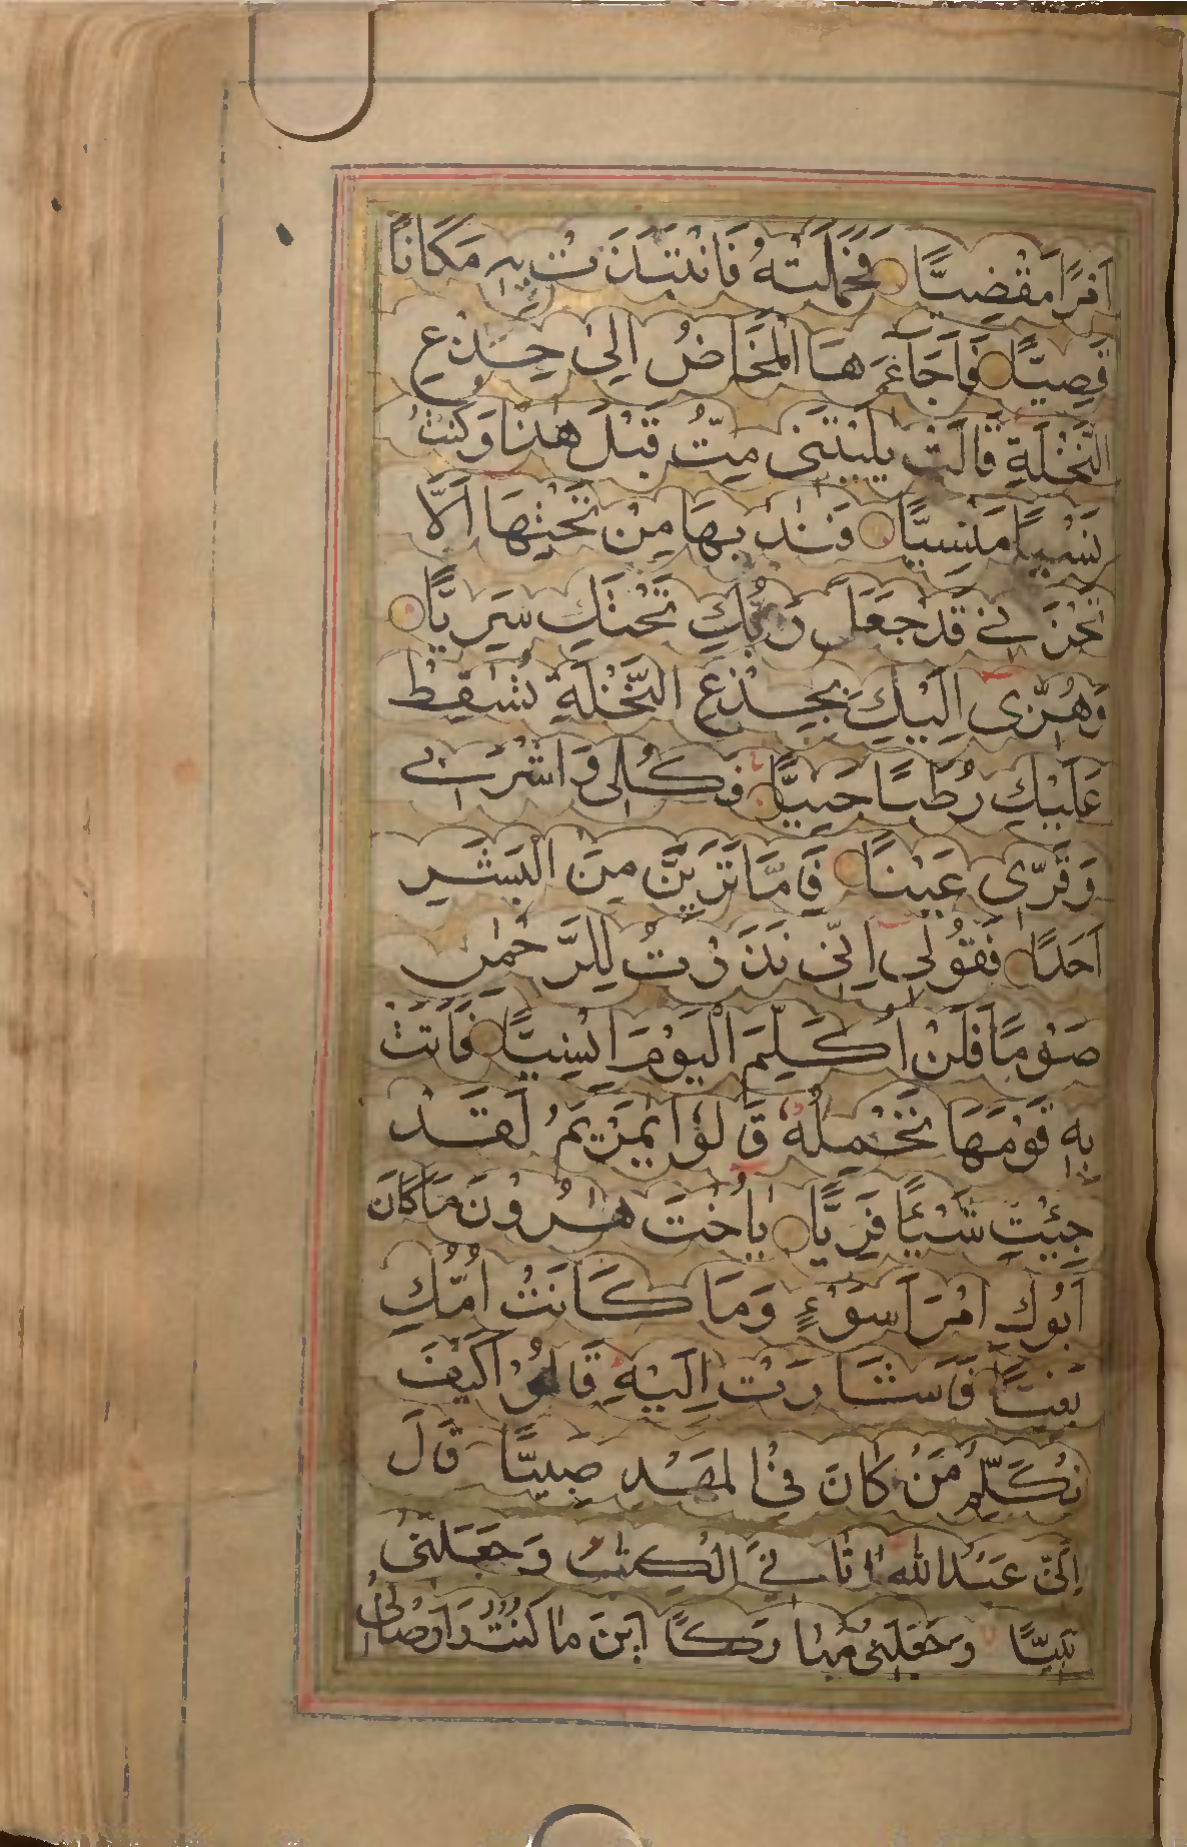 اَمْرًا مَقْضِيًّا فَحَمَلَتْهُ فَانْتَبَذَتْ بِهٖ مَكَانًا
قَصِيًّا فَاَجَآءَهَا الْمَخَاضُ اِلٰى جِذْعِ
النَّخْلَةِ قَالَتْ يٰلَيْتَنِى مِتُّ قَبْلَ هٰذَا وَكُنْتُ
نَسْيًا مَنْسِيًّا فَنَادٰىهَا مِنْ تَحْتِهَا اَلَّا
تَحْزَنِى قَدْ جَعَلَ رَبُّكِ تَحْتَكِ سَرِيًّا
وَهُزِّى اِلَيْكِ بِجِذْعِ النَّخْلَةِ تُسٰقِطْ
عَلَيْكِ رُطَبًا جَنِيًّا فَكُلِى وَاشْرَبِى
وَقَرِّى عَيْنًا فَاِمَّا تَرَيِنَّ مِنَ الْبَشَرِ
اَحَدًا فَقُولِى اِنِّى نَذَرْتُ لِلرَّحْمٰنِ
صَوْمًا فَلَنْ اُكَلِّمَ الْيَوْمَ اِنْسِيًّا فَاَتَتْ
بِهٖ قَوْمَهَا تَحْمِلُهٗ قَالُوْا يٰمَرْيَمُ لَقَدْ
جِئْتِ شَيْئًا فَرِيًّا يٰاُخْتَ هٰرُوْنَ مَا كَانَ
اَبُوْكِ امْرَاَ سَوْءٍ وَمَا كَانَتْ اُمُّكِ
بَغِيًّا فَاَشَارَتْ اِلَيْهِ قَالُوْا كَيْفَ
نُكَلِّمُ مَنْ كَانَ فِى الْمَهْدِ صَبِيًّا قَالَ
اِنِّى عَبْدُ اللّٰهِ اٰتَانِىَ الْكِتٰبَ وَجَعَلَنِى
نَبِيًّا وَجَعَلَنِى مُبَارَكًا اَيْنَ مَا كُنْتُ وَاَوْصَانِى